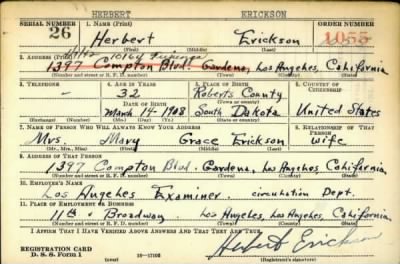 HERBERT ERICKSON
SERIAL NUMBER 1. NAME (Print) ORDER NUMBER
26 Herbert Erickson 1055
(First) (Middle) (Last)
2. ADDRESS (Print)
1397 Compton Blvd. Gardena, Los Angeles, California
(Number and street or R. F. D. number) (Town) (County) (State)
3. TELEPHONE 4. AGE IN YEARS 5. PLACE OF BIRTH 6. COUNTRY OF CITIZENSHIP
- 32 Roberts County
DATE OF BIRTH (Town or county)
March 14, 1908 South Dakota United States
(Exchange) (Number) (Mo.) (Day) (Yr.) (State or country)
7. NAME OF PERSON WHO WILL ALWAYS KNOW YOUR ADDRESS 8. RELATIONSHIP OF THAT PERSON
Mrs. Mary Grace Erickson wife
(Mr., Mrs., Miss) (First) (Middle) (Last)
9. ADDRESS OF THAT PERSON
1397 Compton Blvd. Gardena, Los Angeles, California
(Number and street or R. F. D. number) (Town) (County) (State)
10. EMPLOYER'S NAME
Los Angeles Examiner. circulation Dept.
11. PLACE OF EMPLOYMENT OR BUSINESS
11th & Broadway. Los Angeles, Los Angeles, California.
(Number and street or R. F. D. number) (Town) (County) (State)
I AFFIRM THAT I HAVE VERIFIED ABOVE ANSWERS AND THAT THEY ARE TRUE.
Herbert Erickson
REGISTRATION CARD
D. S. S. Form 1 16-17105 (Registrant's signature)